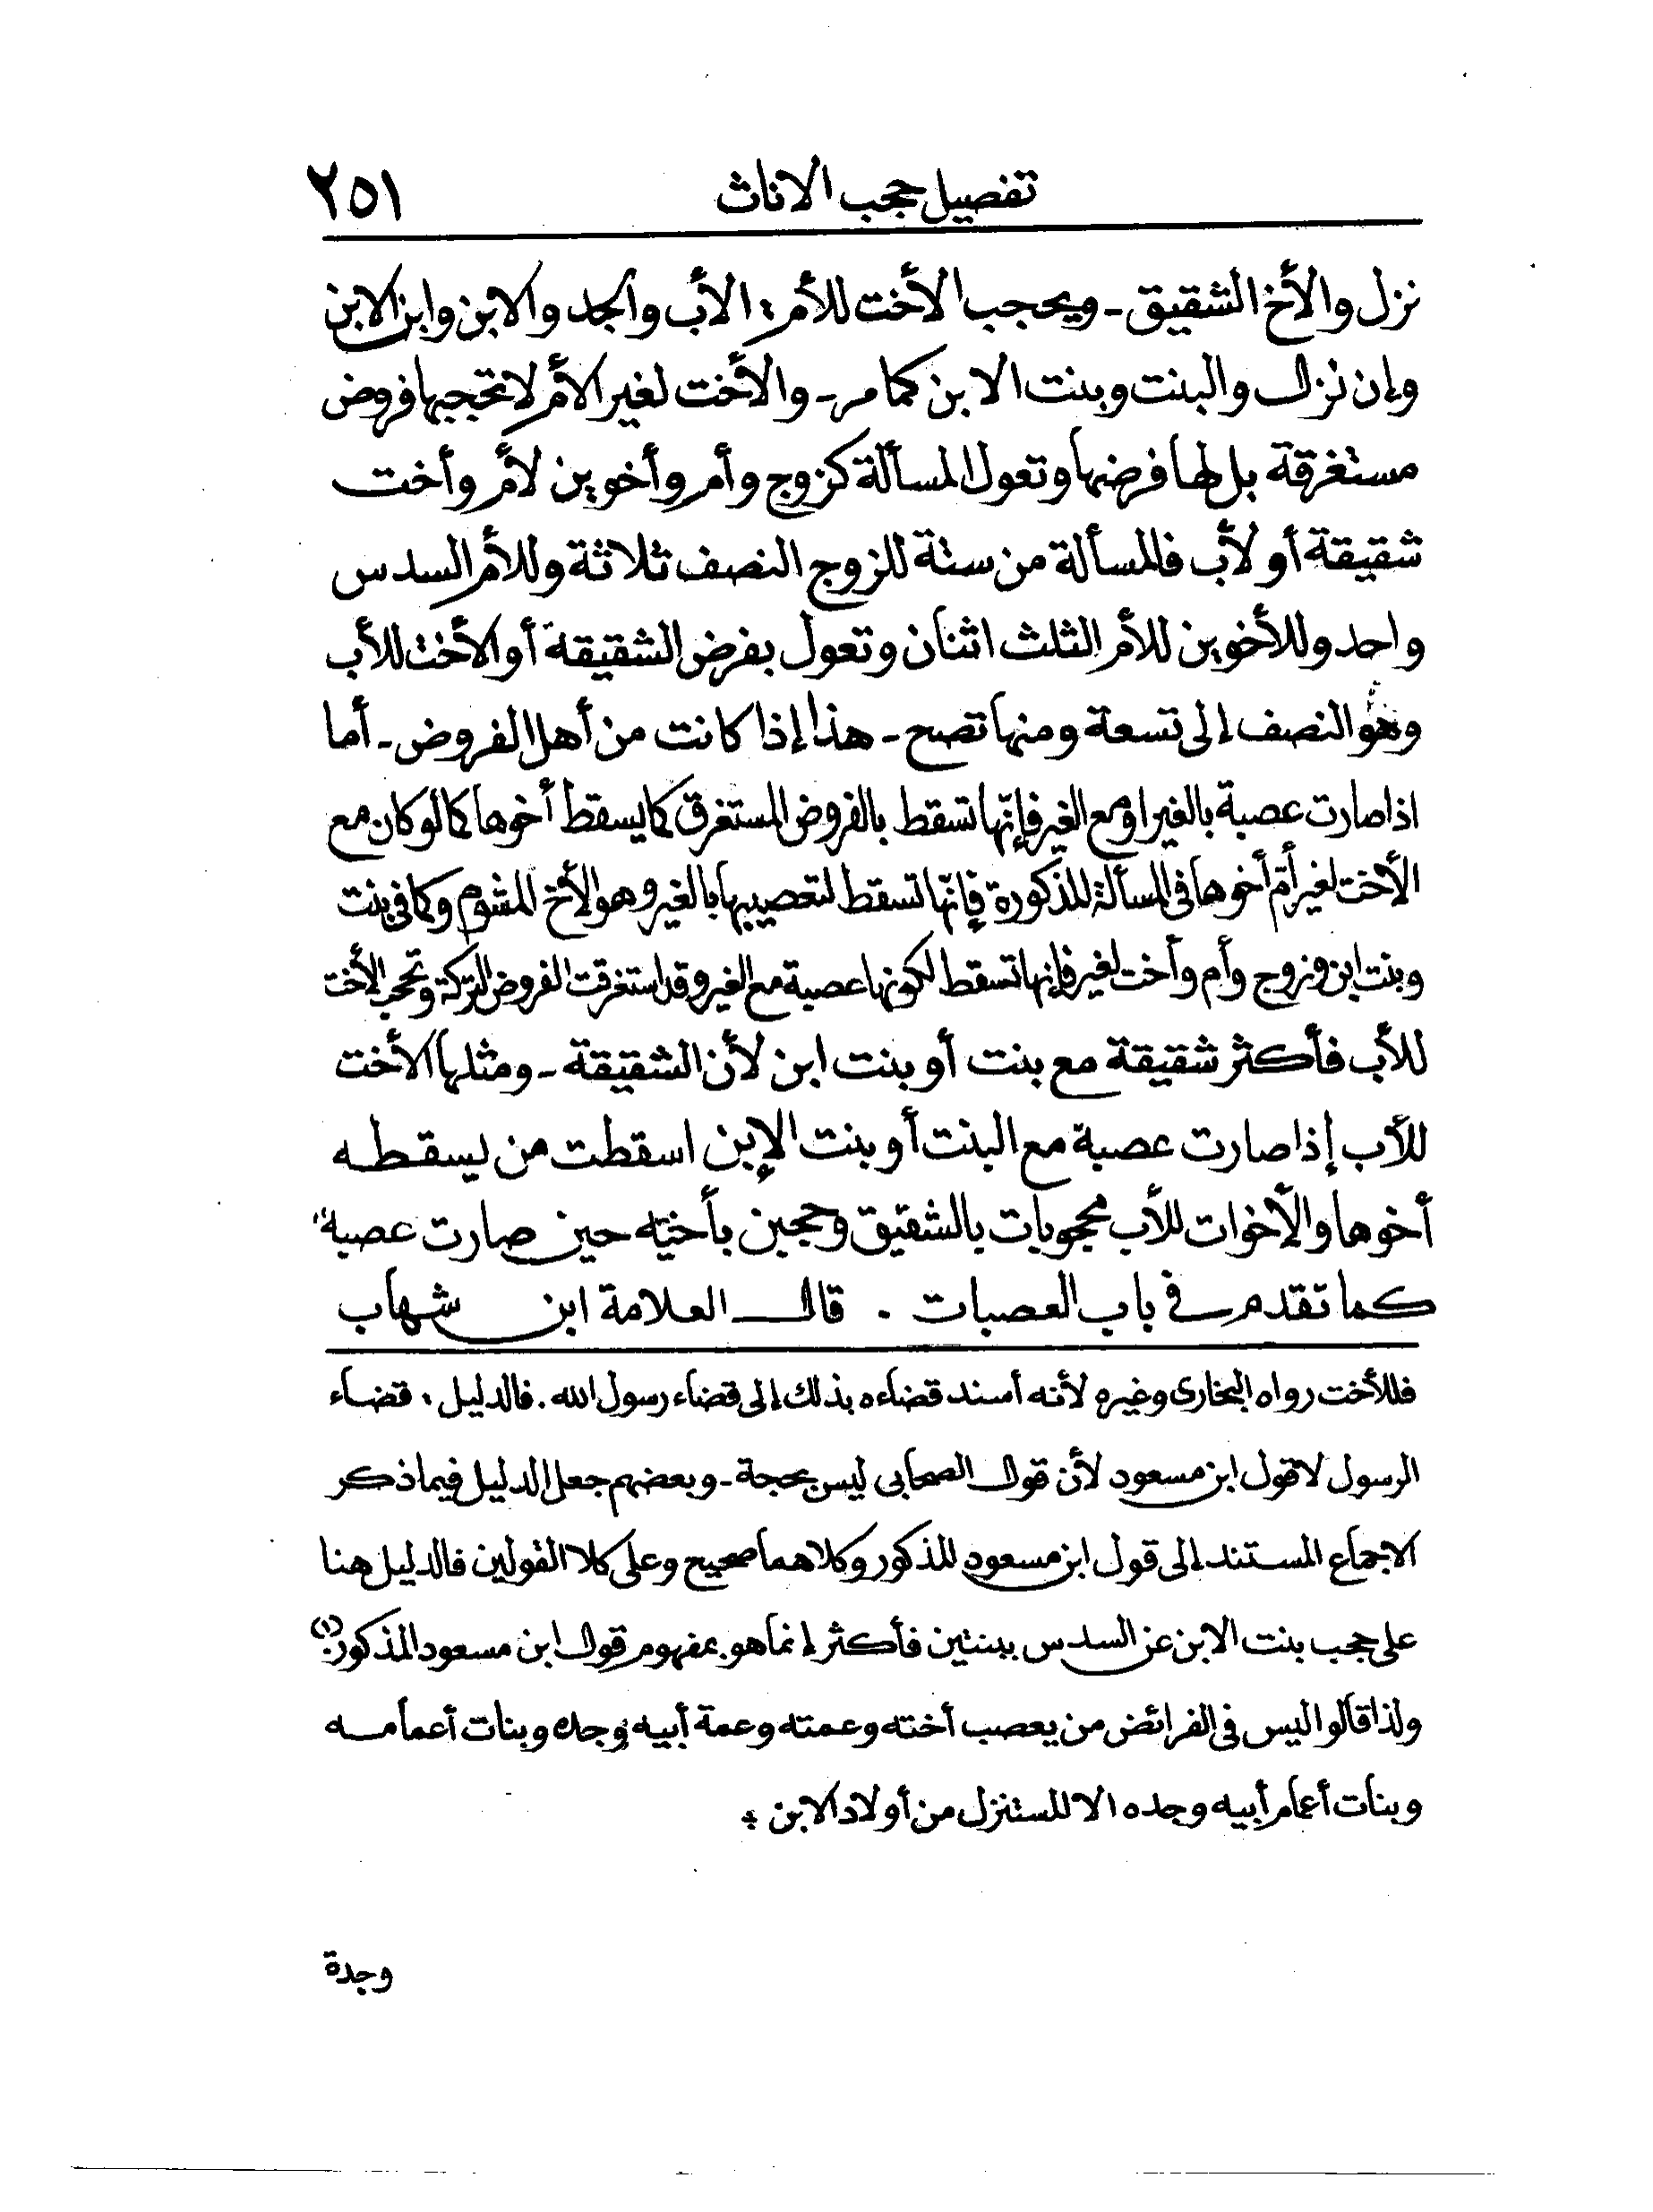 تفصيل حجب الاناث ٢٥١
نزل والأخ الشقيق - ويحجب الأخت للأم : الأب والجد والابن وابن الابن
وإن نزل والبنت وبنت الابن كما مر - والأخت لغير الأم لا تحجبها فروض
مستغرقة بل لها فرضها وتعول المسألة كزوج وأم وأخوين لأم وأخت
شقيقة أو لأب فالمسألة من ستة للزوج النصف ثلاثة وللأم السدس
واحد وللأخوين للأم الثلث اثنان وتعول بفرض الشقيقة أو الأخت للأب
وهو النصف إلى تسعة ومنها تصح - هذا إذا كانت من أهل الفروض - أما
اذا صارت عصبة بالغير او مع الغير فإنّها تسقط بالفروض المستغرق كما يسقط أخوها كما لو كان مع
الأخت لغير أمّ أخوها فى المسألة المذكورة فإنّها تسقط لتعصيبها بالغير وهو الأخ المشوم وكما فى بنت
وبنت ابن وزوج وأم وأخت لغير فإنها تسقط لكونها عصبة مع الغير وقد استغرقت الفروض التركة وتحجب الأخت
للأب فأكثر شقيقة مع بنت أو بنت ابن لأن الشقيقة - ومثلها الأخت
للأب إذا صارت عصبة مع البنت أو بنت الإبن اسقطت من يسقطه
أخوها والأخوات للأب محجوبات بالشقيق وحجبن بأخته حين صارت عصبة
كما تقدم في باب العصبات . قال العلامة ابن شهاب
فللأخت رواه البخارى وغيره لأنه أسند قضاءه بذلك إلى قضاء رسول الله . فالدليل ، قضاء
الرسول لا قول ابن مسعود لأن قول الصحابى ليس بحجة - وبعضهم جعل الدليل فيما ذكر
الاجماع المستند إلى قول ابن مسعود المذكور وكلاهما صحيح وعلى كلا القولين فالدليل هنا
على حجب بنت الابن عن السدس ببنتين فأكثر إنما هو بمفهوم قول ابن مسعود المذكور . (١)
ولذا قالوا ليس فى الفرائض من يعصب أخته وعمته وعمة أبيه وجده وبنات أعمامه
وبنات أعمام أبيه وجده الا المستنزل من أولاد الابن
وجدة